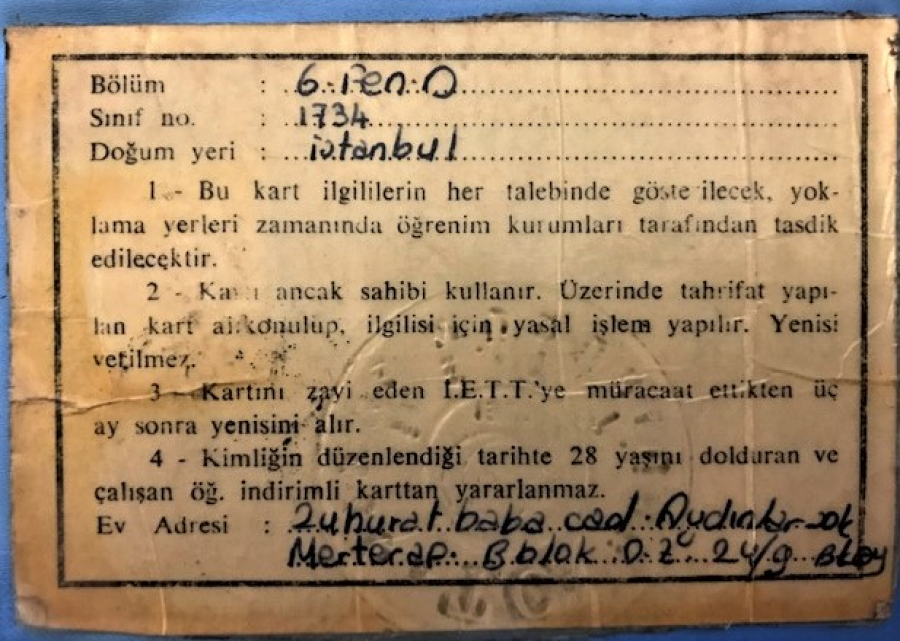 Bölüm : 6. Fen. D
Sınıf no. : 1734
Doğum yeri : istanbul
1 - Bu kart ilgililerin her talebinde gösterilecek, yok-
lama yerleri zamanında öğrenim kurumları tarafından tasdik
edilecektir.
2 - Kartı ancak sahibi kullanır. Üzerinde tahrifat yapı-
lan kart alıkonulup, ilgilisi için yasal işlem yapılır. Yenisi
verilmez.
3 - Kartını zayi eden İ.E.T.T.'ye müracaat ettikten üç
ay sonra yenisini alır.
4 - Kimliğin düzenlendiği tarihte 28 yaşını dolduran ve
çalışan öğ. indirimli karttan yararlanmaz.
Ev Adresi : Zuhurat baba cad. Aydınlar sok
Merterap. B blok D.Z. 24/9